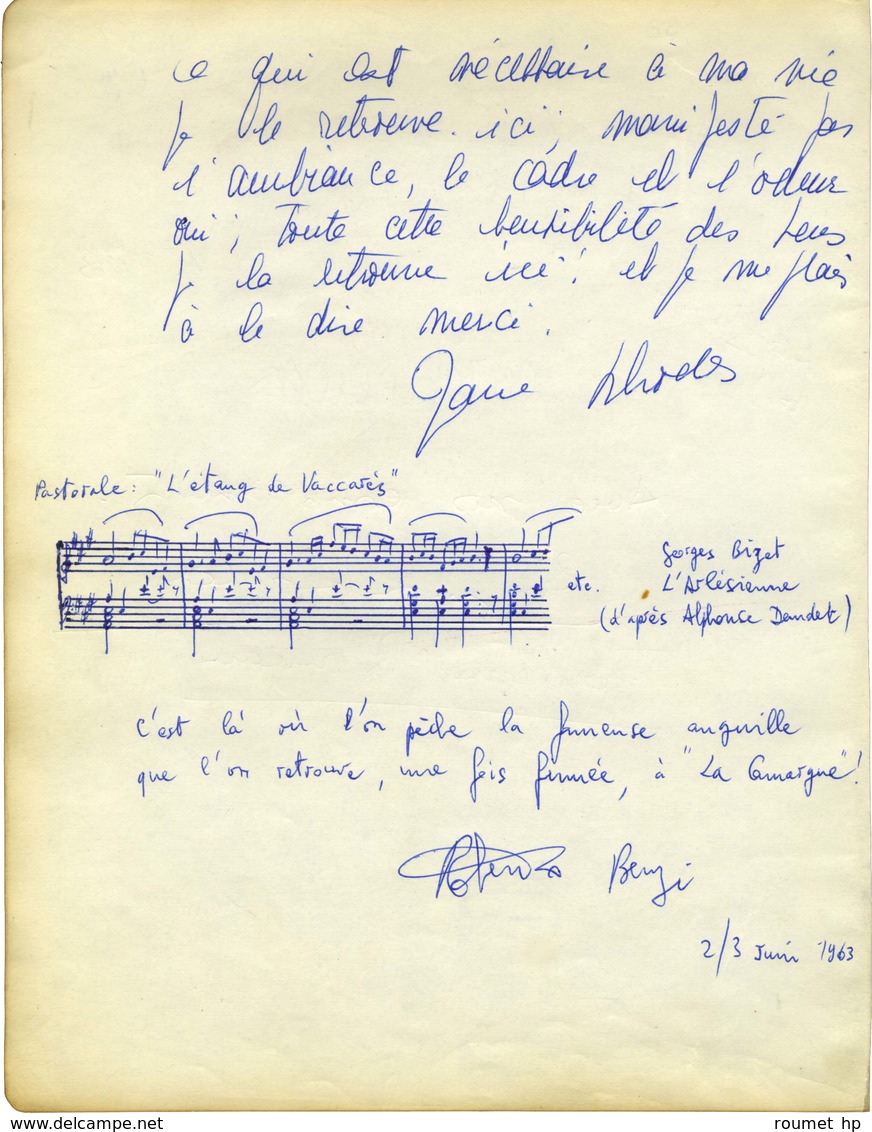 ce qui est nécessaire à ma vie
je le retrouve ici, manifesté par
l'ambiance, le cadre et l'odeur
oui ; toute cette sensibilité des sens
je la retrouve ici ! et je me plais
à le dire merci.
Jane Rhodes
Pastorale : "L'étang de Vaccarès"
etc.
Georges Bizet
L'Arlésienne
(d'après Alphonse Daudet)
c'est là où l'on pêche la fameuse anguille
que l'on retrouve, une fois fumée, à "La Camargue" !
Roberto Benzi
2/3 Juin 1963
www.delcampe.net
roumet hp